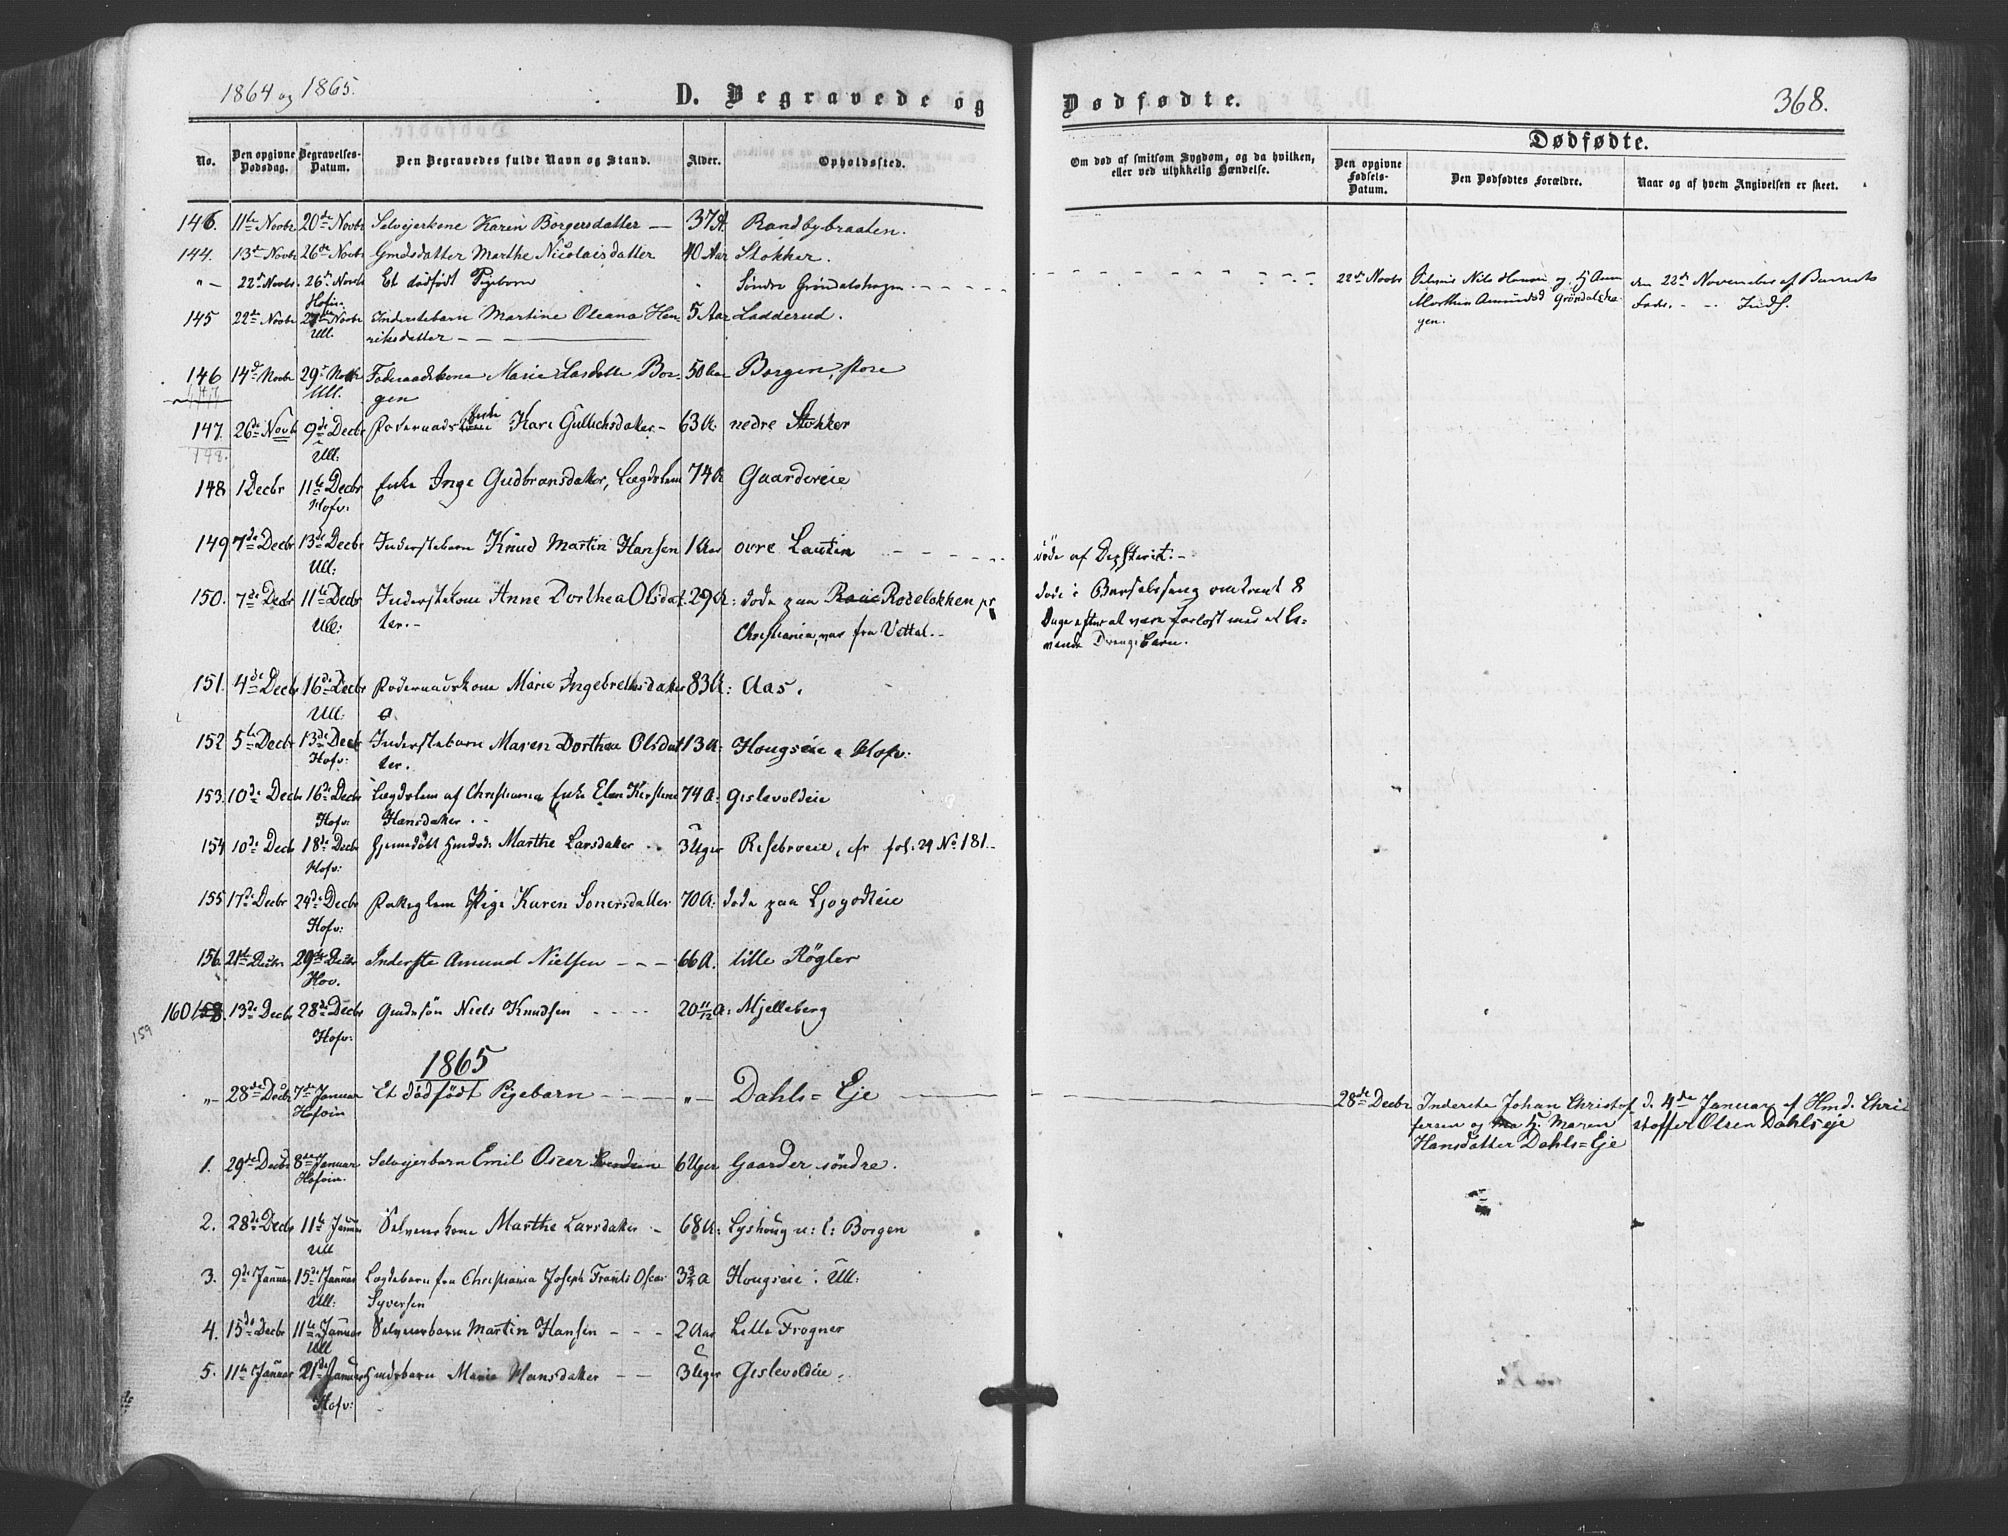 1864 og 1865.
D. Begravede og
Dødfødte.
368.
No.
Den opgivne Dødsdag.
Begravelses-Datum.
Den Begravedes fulde Navn og Stand.
Alder.
Opholdssted.
Om død af smitsom Sygdom, og da hvilken, eller ved ulykkelig Hændelse.
Dødfødte.
Den opgivne Fødsels-Datum.
Den Dødfødtes Forældre.
Naar og af hvem Angivelsen er skeet.
146. 11te Novbr 20de Novbr Selvejerkone Karen Borgersdatter — 37 A. Randbybraaten.
144. 13de Novbr 26de Novbr Gmdsdatter Marthe Nicolaisdatter 40 Aar Stokker.
" — 22de Novbr. 26de Novbr Et dødfødt Pigebarn " Søndre Grøndalshagen 22de Novbr Nils Hansen og H. Ann den 22de November af Barnets
Hofv. Marthea Amundsd Grøndalsha- Fader
gen.
145 22de Novbr Novbr Inderstebarn Martine Oleana Hen- 5 Aar Ladderud.
Ull. riksdatter
146 14de Novbr 29de Novbr Foderaadskone Marie Larsdatter Bor- 50 Aar Borgen, store
Ull. gen
147. 26de Novb 9de Decbr Foderaads Enke Kari Gullichsdatter — 63 A. nedre Stokker
148. Ull:
148 1 Decbr 11te Decbr Enke Inge Gudbransdatter, Lægdslem 74 A Gaardereie
Hofv:
149 7de Decbr 13de Decbr Inderstebarn Knud Martin Hansen 1 Aar øvre Lautin døde af Dipfterit. —
Ull:
150. 7de Decbr 11te Decbr Inderstekone Anne Dorthea Olsdat- 29 A: døde paa Rodeløkken pr døde i Barselseng omtrent 8
Ull: ter. — Christiania, var fra Vettal. — Dage efter at være forløst med et le-
vende Drengebarn.
151. 4de Decbr 16de Decbr Foderaadskone Marie Ingebrethsdatter 83 A: Aas.
Ull:
152 5te Decbr 13de Decbr Inderstebarn Maren Dorthea Olsdat- 13 A: Hougseie i Hofv:
Hofv: ter.
153. 10de Decbr 16de Decbr Lægdslem af Christiania Enke Elen Kirstine 74 A: Gislevoldeie
Hofv: Hansdatter
154 10de Decbr 18de Decbr hjemmedøbt Marthe Larsdatter 3 Uger Risebroeie, cfr fol: 29 No 181.
Hofv:
155 17de Decbr 24de Decbr Pige Karen Simersdatter 70 A: døde paa Ljøgodteie
Hofv:
156. 21de Decbr 29de Decbr Inderste Amund Nielsen — — — 66 A. lille Røgler
Hov.
160 13de Decbr 28de Decbr Gmdssøn Niels Knudsen 20 11/12 A: Mjelleberg
159 Hofv:
1865
" — 28de Decbr 7de Januar Et dødfødt Pigebarn " — Dahls=Eje 28de Decbr Inderste Johan Christof- d. 4de Januar af Hmd. Chri-
Hofvin fersen og H. Maren stoffer Olsen Dahlseje
Hansdatter Dahls=Eje
1. 29de Decbr 8de Januar Selvejerbarn Emil Oscar 6 Uger Gaarder søndre.
Hofvin.
2. 28de Decbr 11te Januar Selveierkone Marthe Larsdatter — 68 A: Lyshoug u: l: Borgen
Ull
3. 9de Januar 15de Januar Lægdsbarn fra Christiania Joseph Frants Oscar 3 3/4 A Hougseie i Ull:
Ull: Syversen
4. 15de Decbr 11te Januar Selveierbarn Martin Hansen — — — 2 Aar Lille Frogner
Ull
5. 11te Januar 21de Januar Gmdsbarn Marie Hansdatter — — 3 Uger Gislevoldeie.
Hofv: